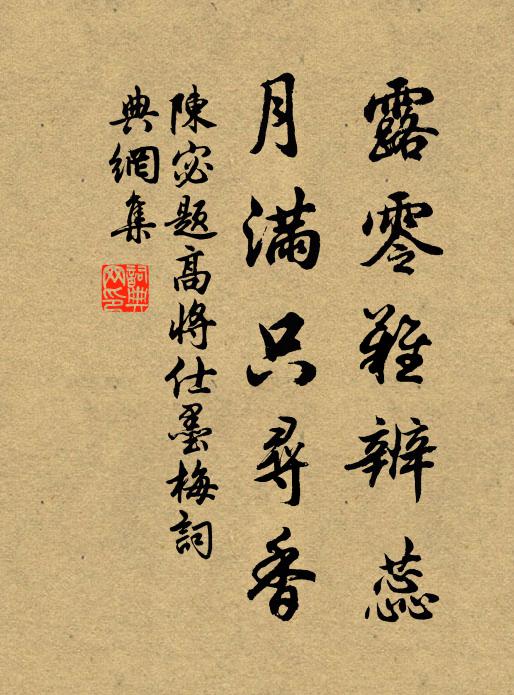 露零難辨蕊
月滿只尋香
陳宓題高將仕墨梅詞
典網集
詞典
网印